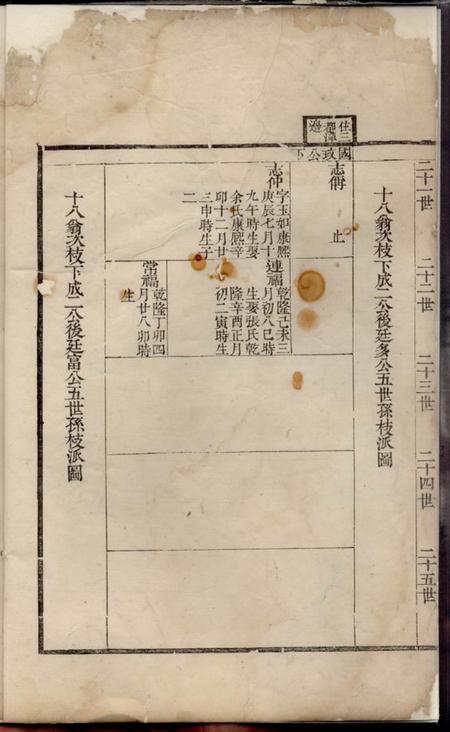 二十一世
二十二世
二十三世
二十四世
二十五世
十八翁次枝下成二公後廷多公五世孫枝派圖
住三
都潭
邊
國政公下
志侢
止
志仲
字玉如康熙
庚辰七月十
九午時生娶
余氏康熙辛
卯十二月廿
三申時生子
二
連福
乾隆己未三
月初八巳時
生娶張氏乾
隆辛酉正月
初二寅時生
常福
乾隆丁卯四
月廿八卯時
生
十八翁次枝下成二公後廷富公五世孫枝派圖